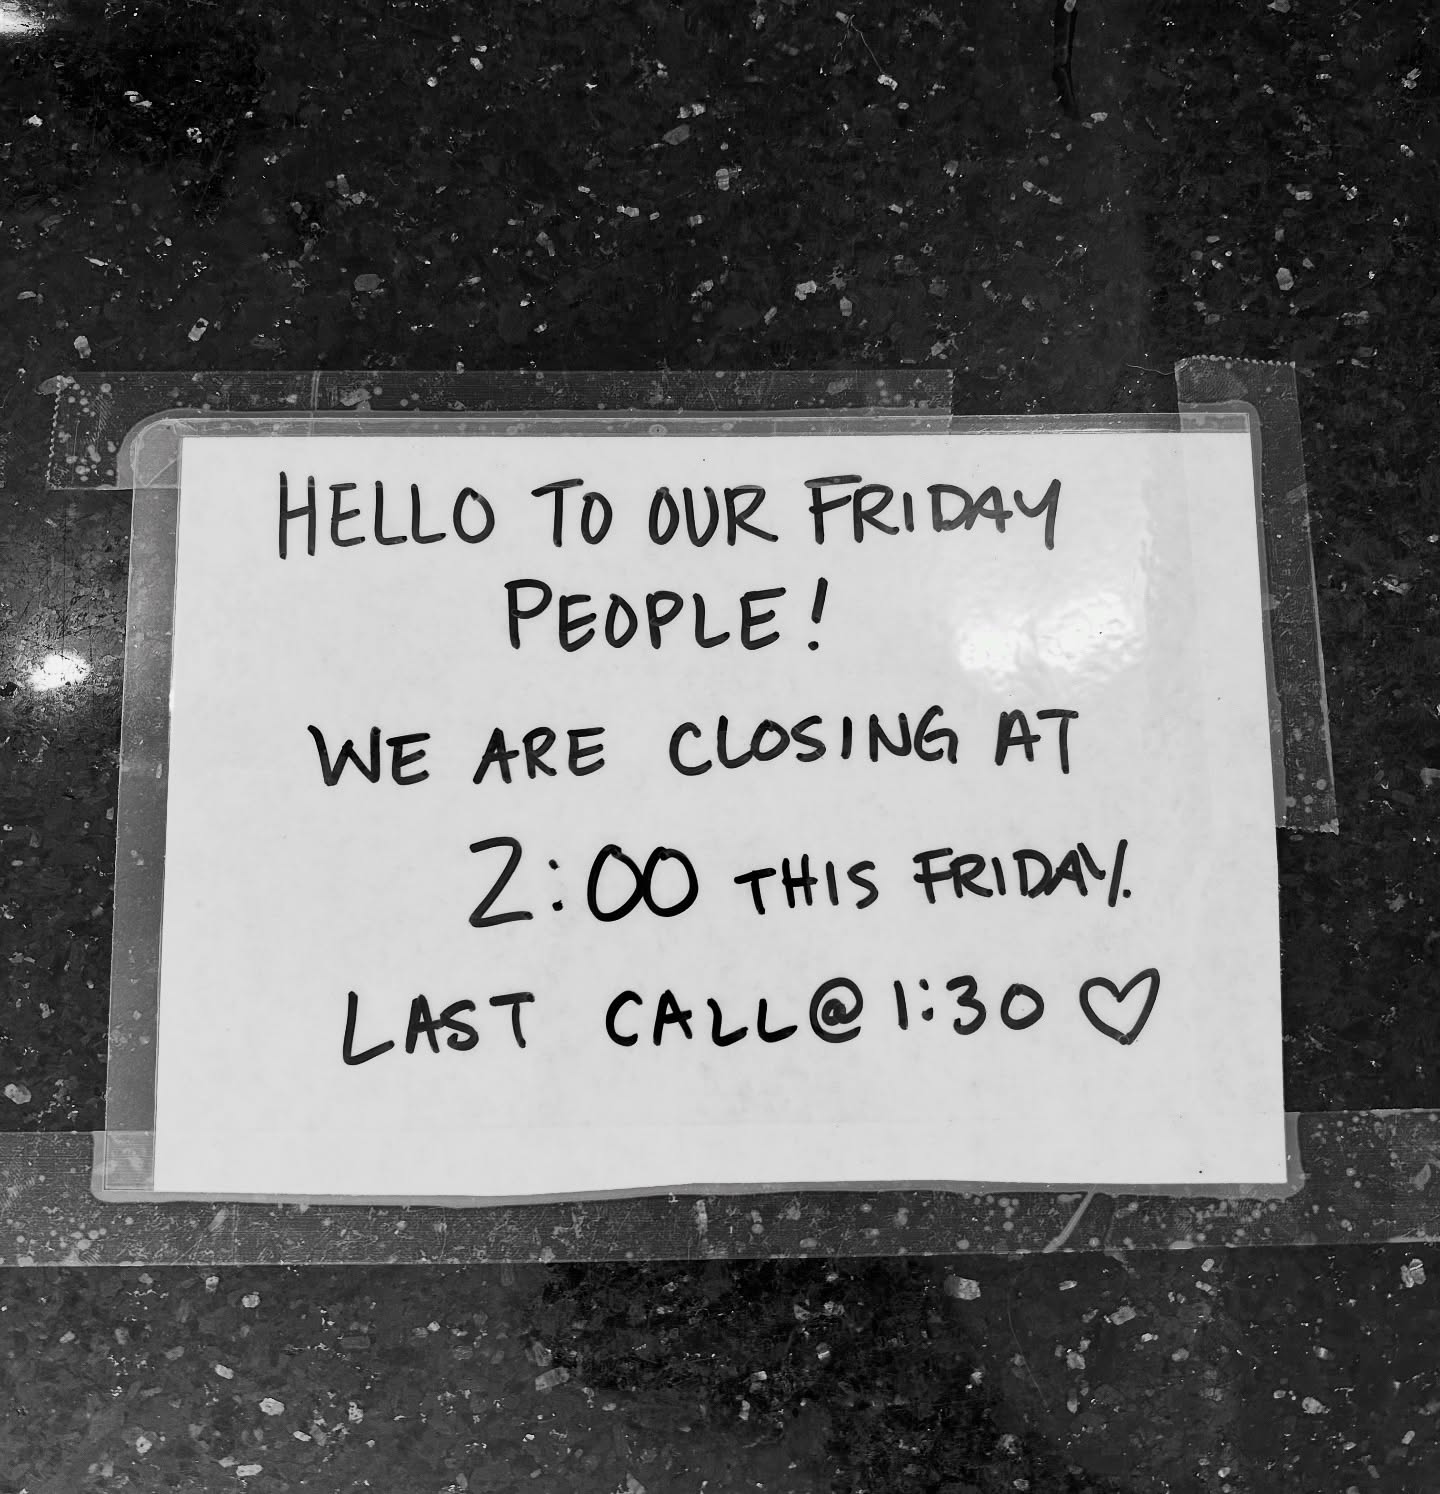 HELLO TO OUR FRIDAY
PEOPLE!
WE ARE CLOSING AT
2:00 THIS FRIDAY.
LAST CALL @ 1:30 ♡